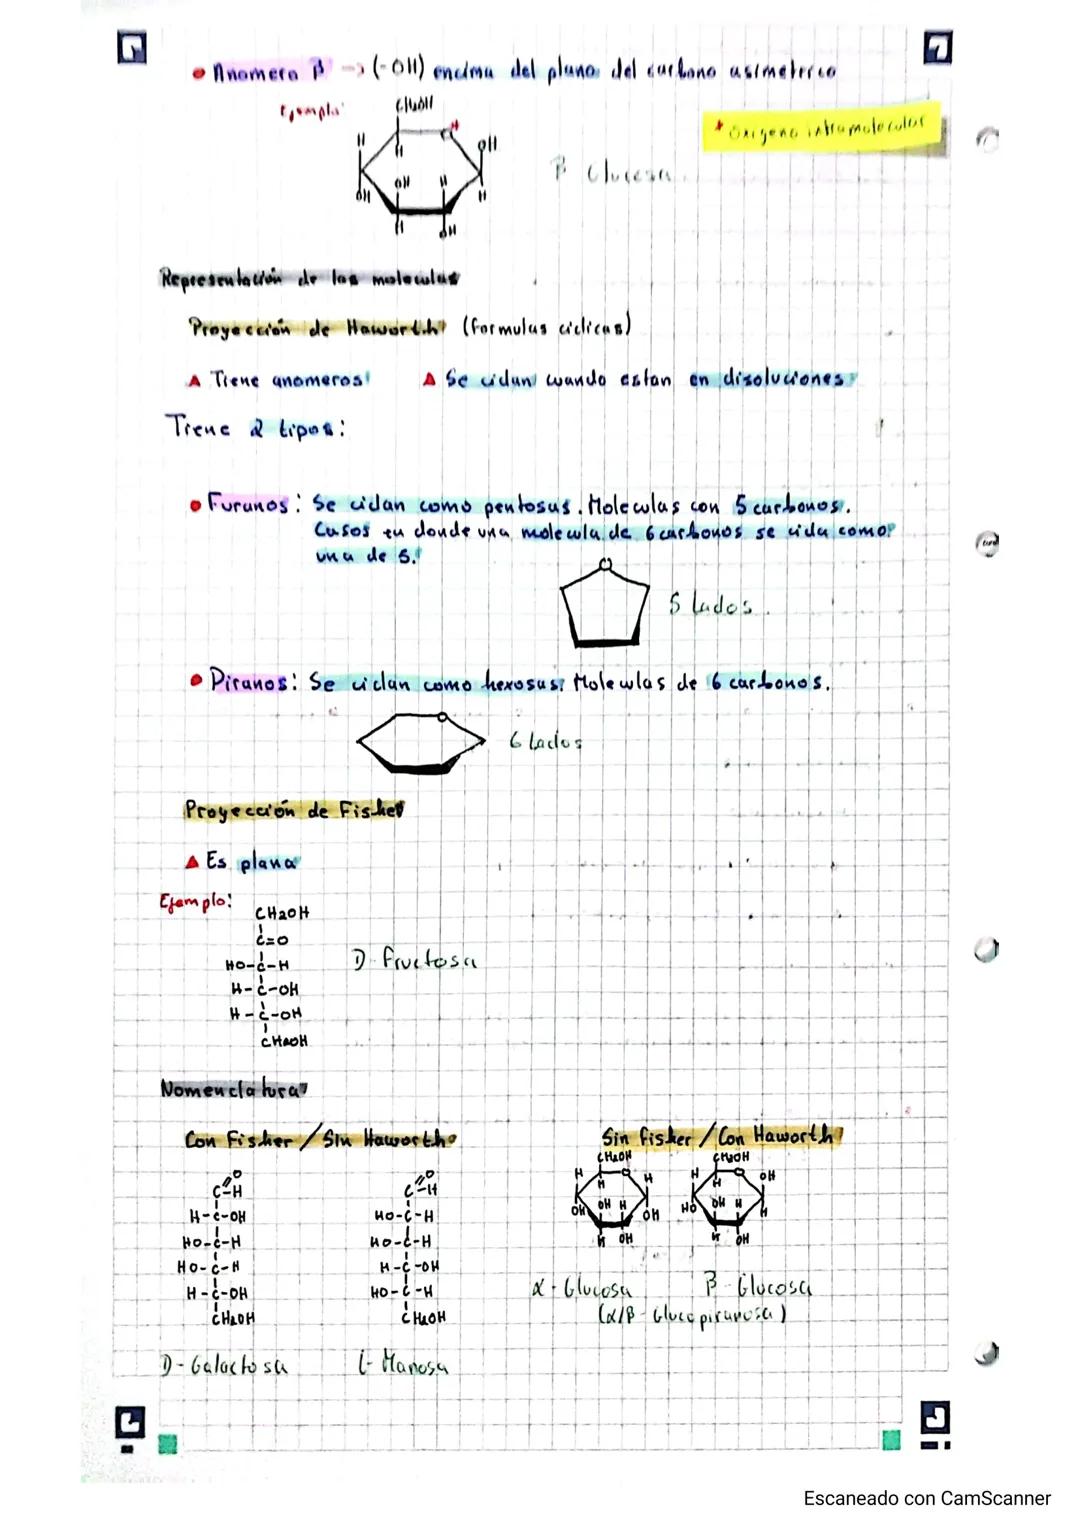 • Anomero β → (-OH) encima del plano del carbono asimétrico
Ejemplo:
CH2OH
H
H
OH
OH
OH
H
H
H
OH
* Oxigeno intramolecular
β Glucosa
Representación de las moleculas
Proyección de Haworth (formulas ciclicas)
▲ Tiene anomeros
▲ Se ciclan cuando estan en disoluciones
Tiene 2 tipos:
• Furanos: Se ciclan como pentosas. Moleculas con 5 carbonos.
Casos en donde una molecula de 6 carbonos se cicla como
una de 5.
O
5 lados
• Piranos: Se ciclan como hexosas. Moleculas de 6 carbonos.
O
6 lados
Proyección de Fisher
▲ Es plana
Ejemplo:
CH2OH
C=O
HO-C-H
H-C-OH
H-C-OH
CH2OH
D-fructosa
Nomenclatura
Con Fisher / Sin Haworth
Sin fisher / Con Haworth
O
C-H
H-C-OH
HO-C-H
HO-C-H
H-C-OH
CH2OH
D-Galactosa
O
C-H
HO-C-H
HO-C-H
H-C-OH
HO-C-H
CH2OH
L-Manosa
CH2OH
H
O
H
H
OH
OH H
OH
H
OH
α-Glucosa
CH2OH
H
O
OH
H
HO
OH H
H
H
OH
β-Glucosa
(α/β-Glucopiranosa)
Escaneado con CamScanner